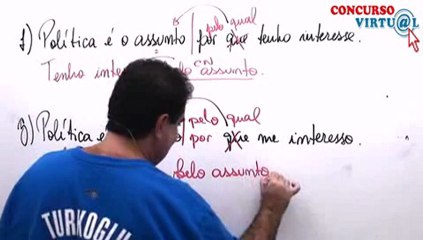 CONCURSO
VIRTU@L
pelo qual
1) Política é o assunto | por que tenho interesse.
CN
Tenho assunto.
pelo qual
Política | por que me interesso.
pelo assunto
TURKOGLU